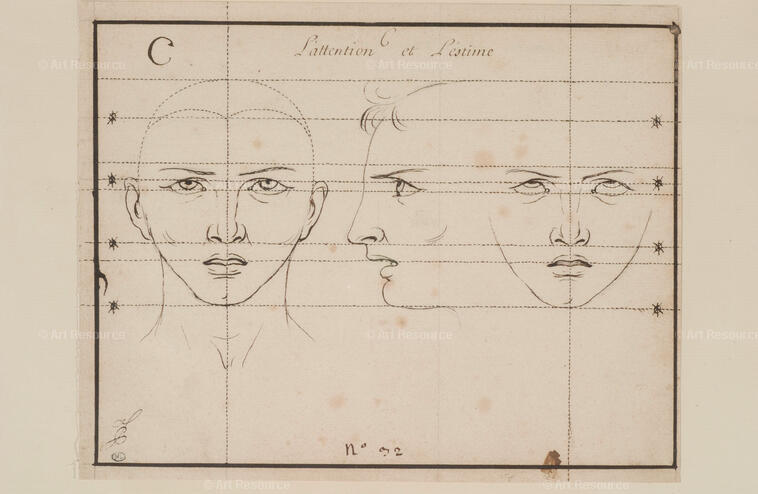 © Art Resource © Art Resource © Art Resource
C
L'attention et L'estime
C
© Art Resource © Art Resource © Art Resource
N° 32
© Art Resource © Art Resource